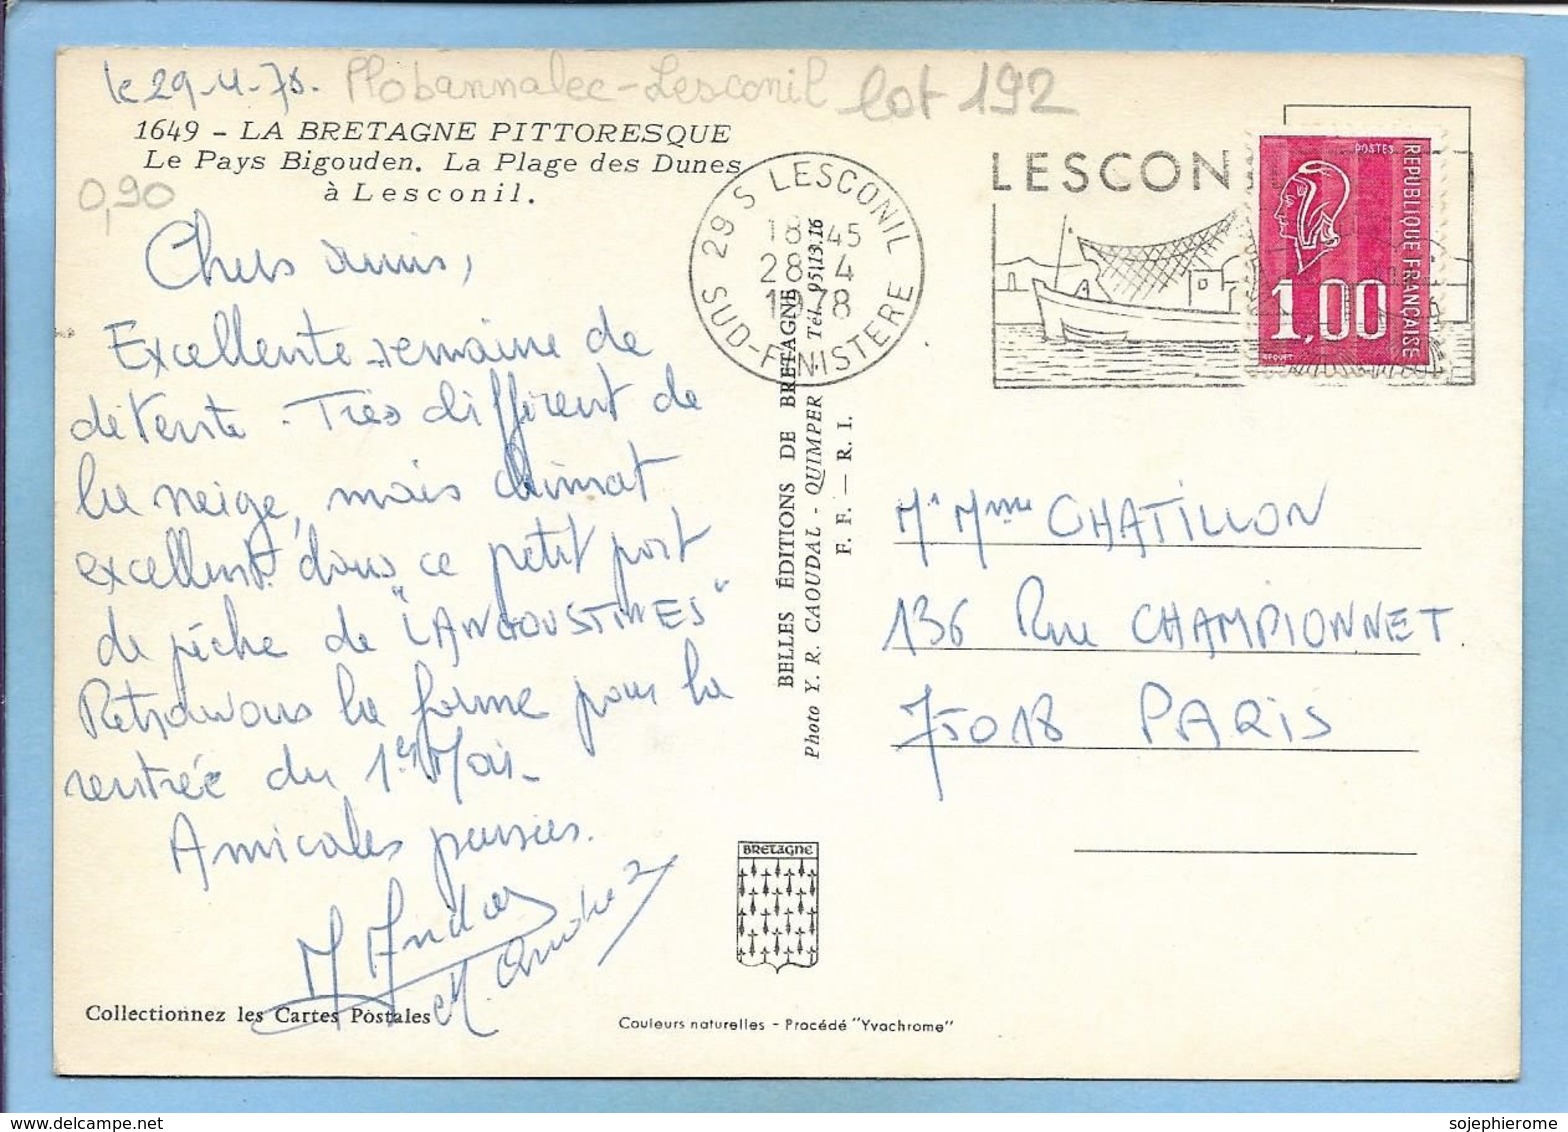 le 29-4-78. Plobannalec-Lesconil lot 192
1649 - LA BRETAGNE PITTORESQUE
Le Pays Bigouden. La Plage des Dunes
à Lesconil.
0,90
Chers amis,
Excellente semaine de
détente - Très différent de
la neige, mais climat
excellent dans ce petit port
de pêche de "LANGOUSTINES"
Retrouvons la forme pour la
rentrée du 1er Mai -
Amicales pensées.
Collectionnez les Cartes Postales
29 S LESCONIL
18 45
28-4
1978
SUD-FINISTERE
LESCON
POSTES
REPUBLIQUE FRANÇAISE
1,00
BELLES ÉDITIONS DE BRETAGNE
Photo Y. R. CAOUDAL - QUIMPER Tél. 95.13.16
F. F. — R. I.
Mr Mme CHATILLON
136 Rue CHAMPIONNET
75018 PARIS
BRETAGNE
Couleurs naturelles - Procédé "Yvachrome"
www.delcampe.net
sojephierome